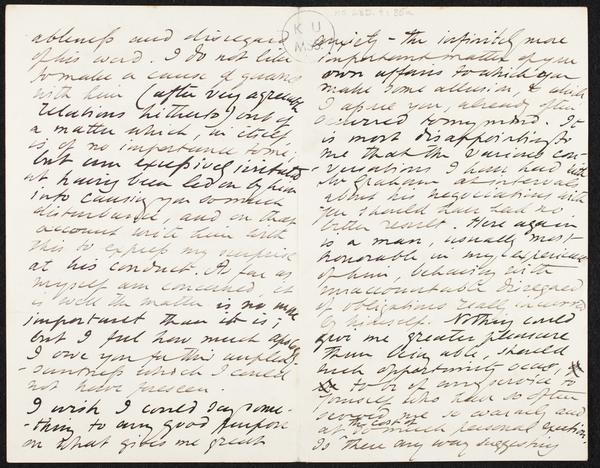 ableness and disregard
of his word. I do not like
to make a cause of quarrel
with him (after very agreeable
relations hitherto) out of
a matter which, in itself
is of no importance to me;
but am excessively irritated
at having been led on by him
into causing you so much
disturbance, and on that
account write him
this to express my surprise
at his conduct. As far as
myself am concerned, it
is well the matter is no more
important than it is;
but I feel how much apology
I owe you for this unplea-
-santness which I could
not have foreseen.
I wish I could say some-
-thing to any good purpose
on what gives me great
K U
anxiety - the infinitely more
important matter of your
own affairs to which you
make some allusion, & which
I assure you, already often
occurred to my mind. It
is most disappointing to
me that the various con-
-versations I have had with
Mr Graham at intervals
about his negotiations with
you should have had no
better result. Here again
is a man, usually most
honorable in my experience
of him, behaving with
unaccountable disregard
of obligations really incurred
by himself. Nothing could
give me greater pleasure
than being able, should
such opportunity occur,
to be of any service to
yourself who have so often
served me so warmly and
at the cost of so much personal exertion.
Is there any way suggesting